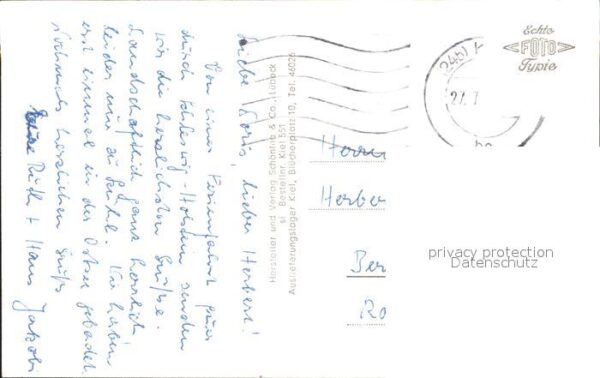 Liebe Doris, lieber Herbert!
Von einer Ferienfahrt quer
durch Schleswig-Holstein senden
wir die herzlichsten Grüße.
Landschaftlich ganz herrlich
leider nur zu kühl. Wir haben
erst einmal in der Ostsee gebadet.
Nochmals herzlichen Gruß
Eure Ruth + Hans Jakobi
Hersteller und Verlag Schöning & Co., Lübeck
Bestellnr. Kiel 551
Auslieferungslager Kiel, Blücherplatz 10, Tel. 46026
Echte
FOTO
Typie
(24b)
Herrn
Herber
Ber
Ro
privacy protection
Datenschutz